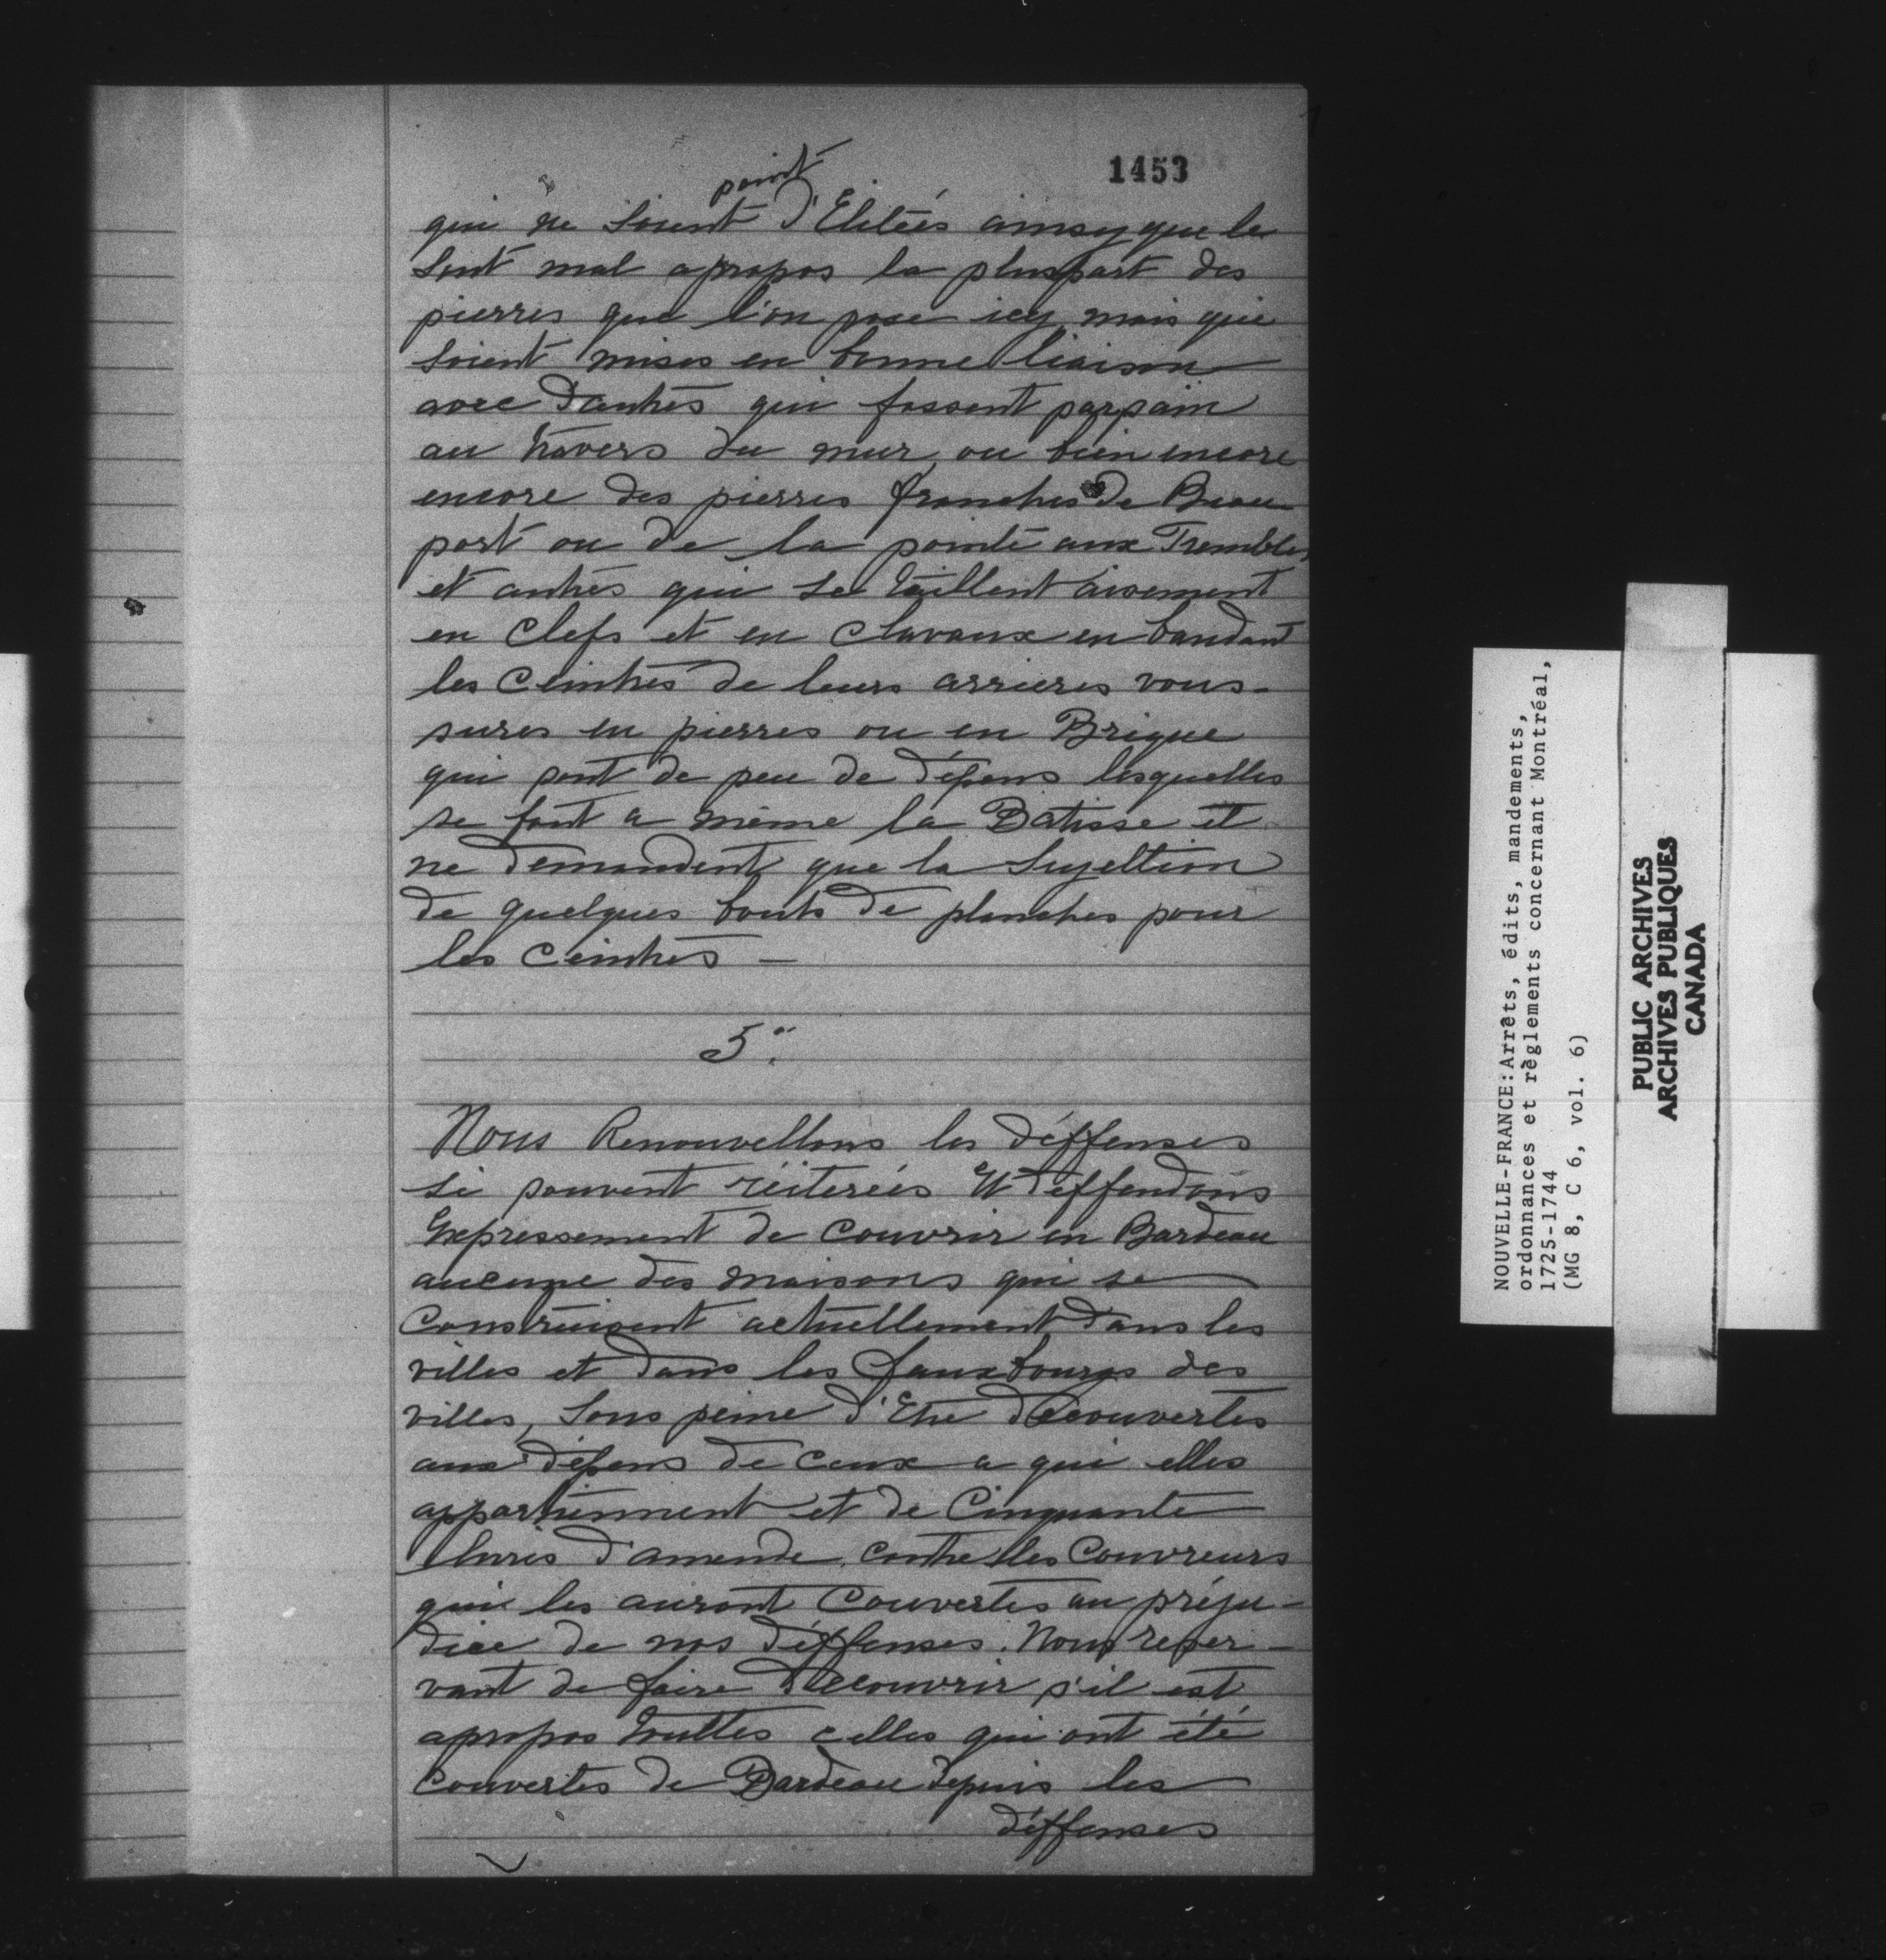 1453
point
qui ne soient d'Elitées ainsy que le
sont mal apropos la pluspart des
pierres que l'on pose icy mais qui
soient mises en bonne liaison
avec d'autres qui fassent parpain
au travers du mur, ou bien encore
encore des pierres franches de Beau-
port ou de la pointe aux Trembles
et autres qui se taillent aisement
en Clefs et en Clavaux en bandant
les Ceintres de leurs arrieres vous-
sures en pierres ou en Brique
qui sont de peu de dépens lesquelles
se font a même la Batisse et
ne demandent que la Sujettion
de quelques bouts de planches pour
les Ceintres —
5.°
Nous Renouvellons les déffenses
si souvent réiterées Et deffendons
Expressement de couvrir en Bardeau
aucune des maisons qui se
Construisent actuellement dans les
villes et dans les fauxbourgs des
villes, Sous peine d'Etre découvertes
aux dépens de Ceux a qui elles
appartiennent et de Cinquante
livres d'amende, contre les Couvreurs
qui les auront Couvertes au préju-
dice de nos déffenses. Nous reser-
vant de faire decouvrir s'il est
apropos touttes celles qui ont été
Couvertes de Bardeau depuis les
déffenses
NOUVELLE-FRANCE: Arrêts, édits, mandements,
ordonnances et règlements concernant Montréal,
1725-1744
(MG 8, C 6, vol. 6)
PUBLIC ARCHIVES
ARCHIVES PUBLIQUES
CANADA